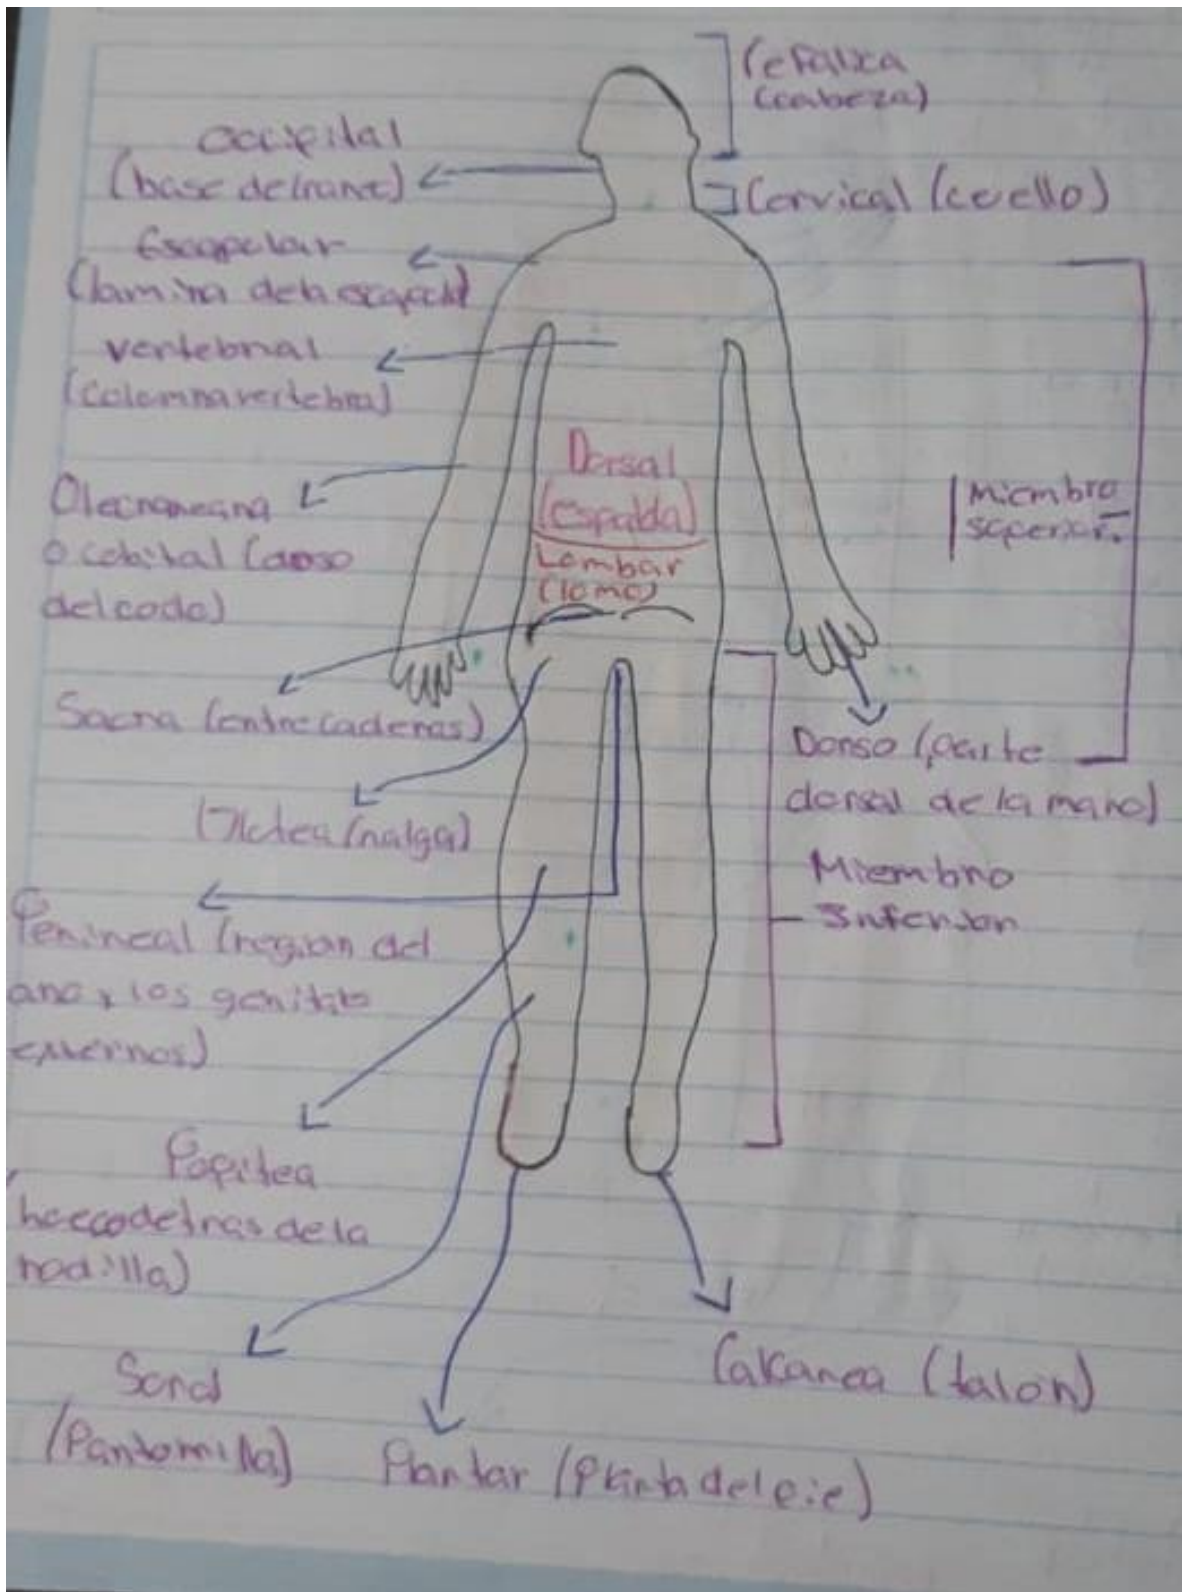 Cefalica
(cabeza)
occipital
(base del
Cervical (cuello)
Escapular
(lamina de la
vertebral
(columna vertebral)
Dorsal
(espalda)
Lumbar
(lomo)
Miembro
superior.
Olecraneana
o cubital (dorso
del codo)
Sacra (entre caderas)
Dorso (parte
dorsal de la mano)
Glutea (nalga)
Miembro
Inferior
Perineal (region del
ano y los genitales
externos)
Poplitea
hueco detras de la
rodilla)
Calcanea (talon)
Sural
(Pantorrilla)
Plantar (Planta del pie)